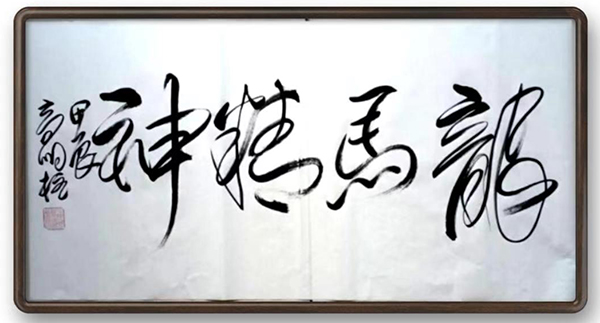 龍馬精神
甲辰
高明